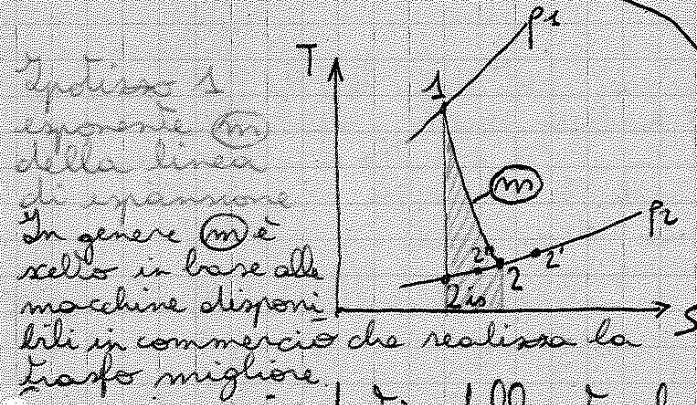 Ipotizzo 1
esponente m
della linea
di espansione
In genere m è
scelto in base alle
macchine disponi
bili in commercio che realizza la
trasfo migliore.
T
p1
1
m
p2
2is
2"
2
2'
S